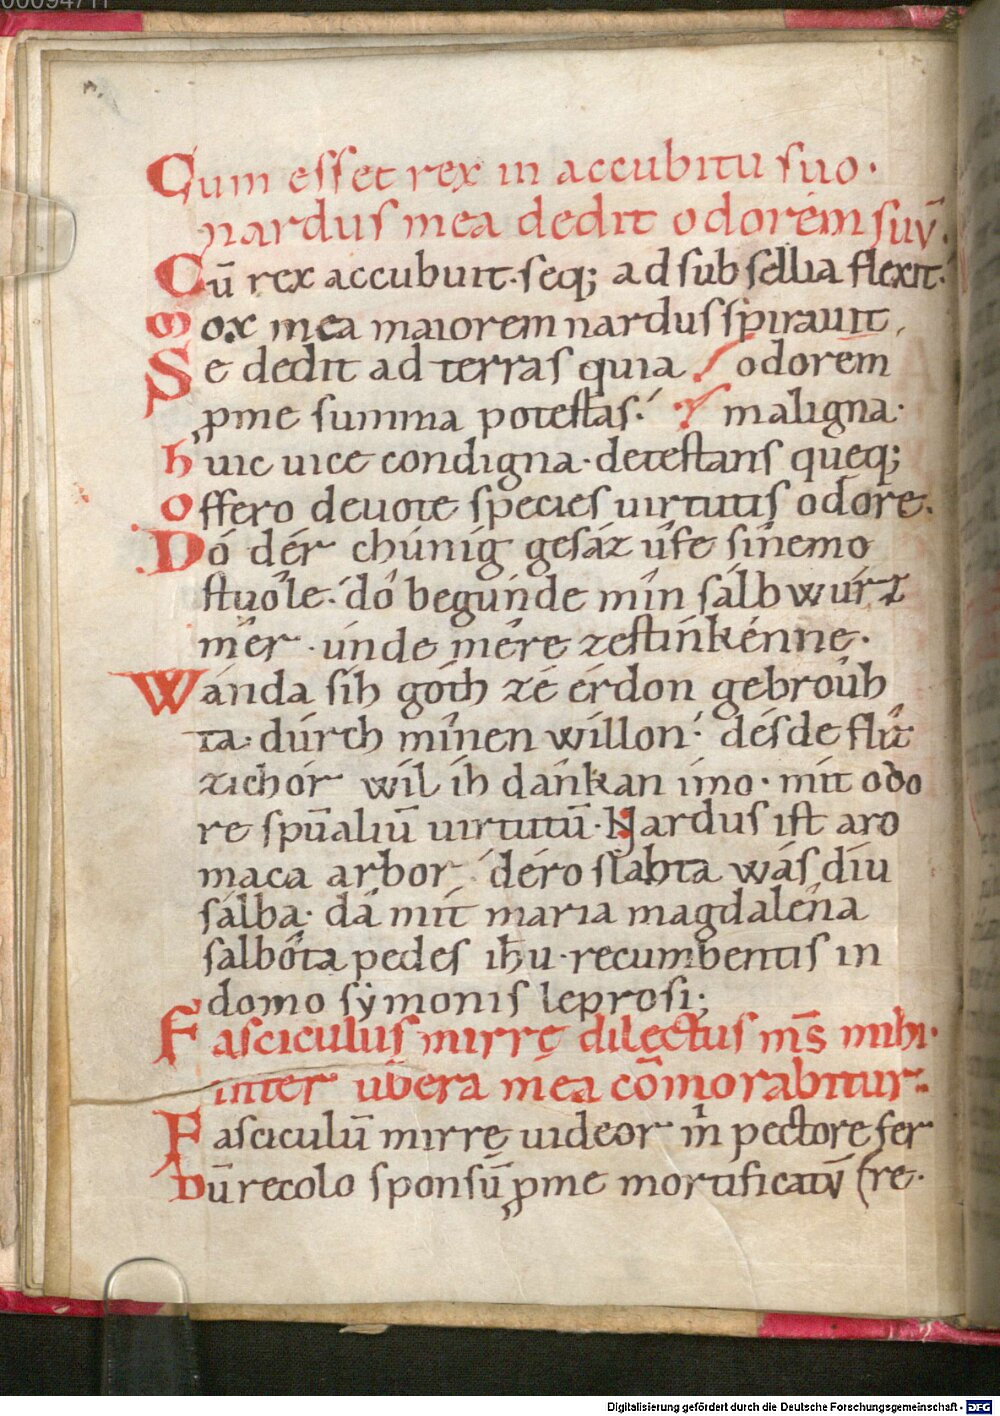 Cum esset rex in accubitu suo·
nardus mea dedit odorem suū.
Cū rex accubuit·seq; ad subsellia flexit.
Mox mea maiorem nardus spirauit
Se dedit ad terras quia odorem
ꝓme summa potestas. maligna·
huic uice condigna·detestans queq;
offero deuote species uirtutis odore.
Dó dér chúnig gesáz ûfe sînemo
stuôle. dô begúnde mîn sálbwúrz
mêr·únde mêre zestínkénne·
Wánda síh góth zé érdon gebroúh
ta·dúrch mînen wíllon. dés de flîz
zichôr wíl íh dánkan imo·mít odo
re spūaliū uirtutū·Nardus ist aro
maca arbor déro slahta wás díu
sálba·dâ mít maria magdalêna
salbôta pedes ihu·recumbentis in
domo sẏmonis leprosi;
Fasciculus mirrę dilectus ms mihi·
inter ubera mea cōmorabitur
Fasciculū mirrę uideor m̊ pectore fer
Dū recolo sponsū ꝓme mortificatū (re·
Digitalisierung gefördert durch die Deutsche Forschungsgemeinschaft - DFG